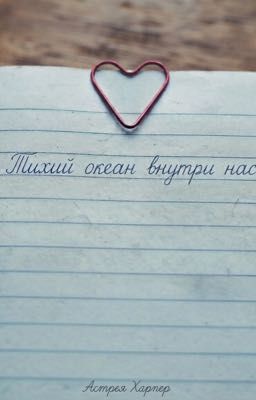 Тихий океан внутри нас
Астрея Харпер